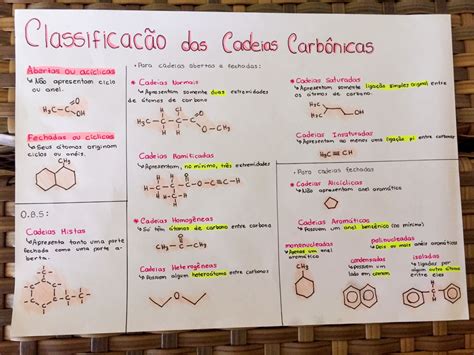 Classificação das Cadeias Carbônicas
Abertas ou acíclicas
↳ Não apresentam ciclo
ou anel.
H₃C-C
O
OH
Fechadas ou cíclicas
↳ Seus átomos originam
ciclos ou anéis.
CH₃
O.B.S:
Cadeias Mistas
↳ Apresenta tanto uma parte
fechada como uma parte a-
berta.
• Para cadeias abertas e fechadas:
• Cadeias Normais
↳ Apresentam somente duas extremidades
de átomos de carbono
Cadeias Ramificadas
↳ Apresentam, no mínimo, três extremidades
• Cadeias Homogêneas
↳ Só têm átomos de carbono entre carbono
Cadeias Heterogêneas
↳ Possuem algum heteroátomo entre carbonos
• Cadeias Saturadas
↳ Apresentam somente ligação simples (sigma) entre
os átomos de carbono.
Cadeias Insaturadas
↳ Apresentam ao menos uma ligação pi entre carbonos
H₃C≡CH
• Para cadeias fechadas
• Cadeias Alicíclicas
↳ Não apresentam anel aromático
• Cadeias Aromáticas
↳ Possuem um anel benzênico (no mínimo)
mononucleadas
↳ Apenas um anel
aromático
CH₃
polinucleadas
↳ Dois ou mais anéis aromáticos
condensadas
↳ Possuem um
lado em
comum.
isoladas
↳ ligados por
algum outro átomo
entre eles